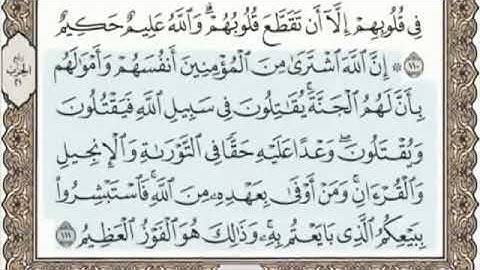 فِى قُلُوبِهِمْ إِلَّآ أَن تَقَطَّعَ قُلُوبُهُمْ ۗ وَٱللَّهُ عَلِيمٌ حَكِيمٌ
١١٠ ۞ إِنَّ ٱللَّهَ ٱشْتَرَىٰ مِنَ ٱلْمُؤْمِنِينَ أَنفُسَهُمْ وَأَمْوَٰلَهُم
بِأَنَّ لَهُمُ ٱلْجَنَّةَ ۚ يُقَٰتِلُونَ فِى سَبِيلِ ٱللَّهِ فَيَقْتُلُونَ
وَيُقْتَلُونَ ۖ وَعْدًا عَلَيْهِ حَقًّا فِى ٱلتَّوْرَىٰةِ وَٱلْإِنجِيلِ
وَٱلْقُرْءَانِ ۚ وَمَنْ أَوْفَىٰ بِعَهْدِهِۦ مِنَ ٱللَّهِ ۚ فَٱسْتَبْشِرُوا۟
بِبَيْعِكُمُ ٱلَّذِى بَايَعْتُم بِهِۦ ۚ وَذَٰلِكَ هُوَ ٱلْفَوْزُ ٱلْعَظِيمُ ١١١
الحزب
٢١